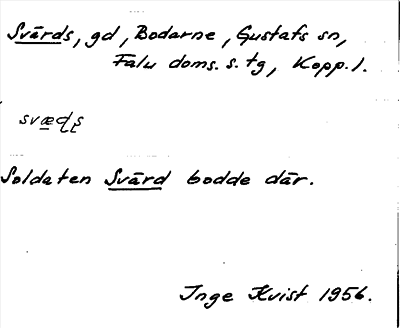 Svärds, gd, Bodarne, Gustafs sn,
Falu doms. s. tg, Kopp. l.
svæḍṣ
Soldaten Svärd bodde där.
Inge Kvist 1956.